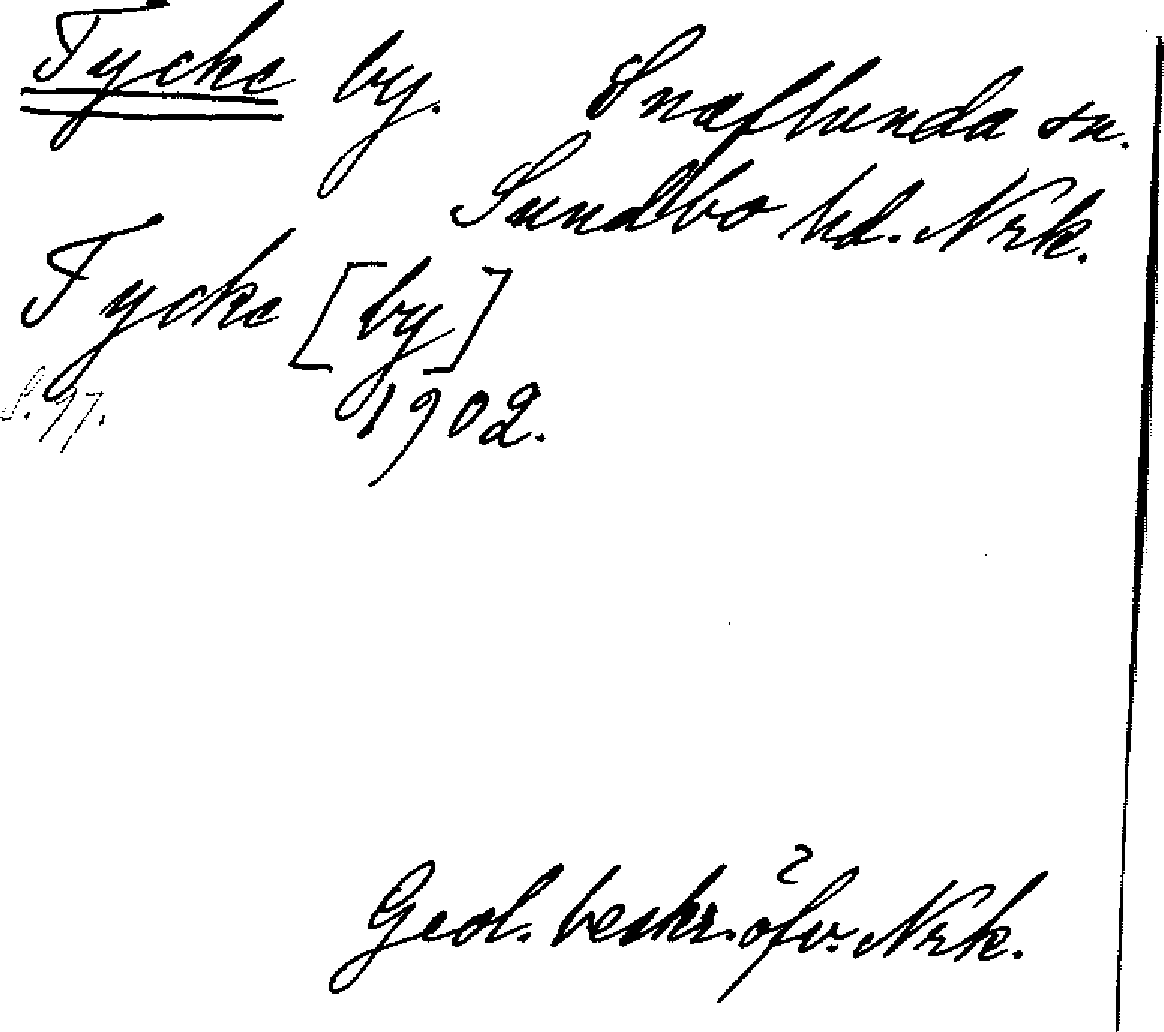 Tycke by. Snaflunda sn.
Sundbo hd. Nrk.
Tycke [by]
S. 97. 1902.
Geol. beskr. öfv. Nrk.